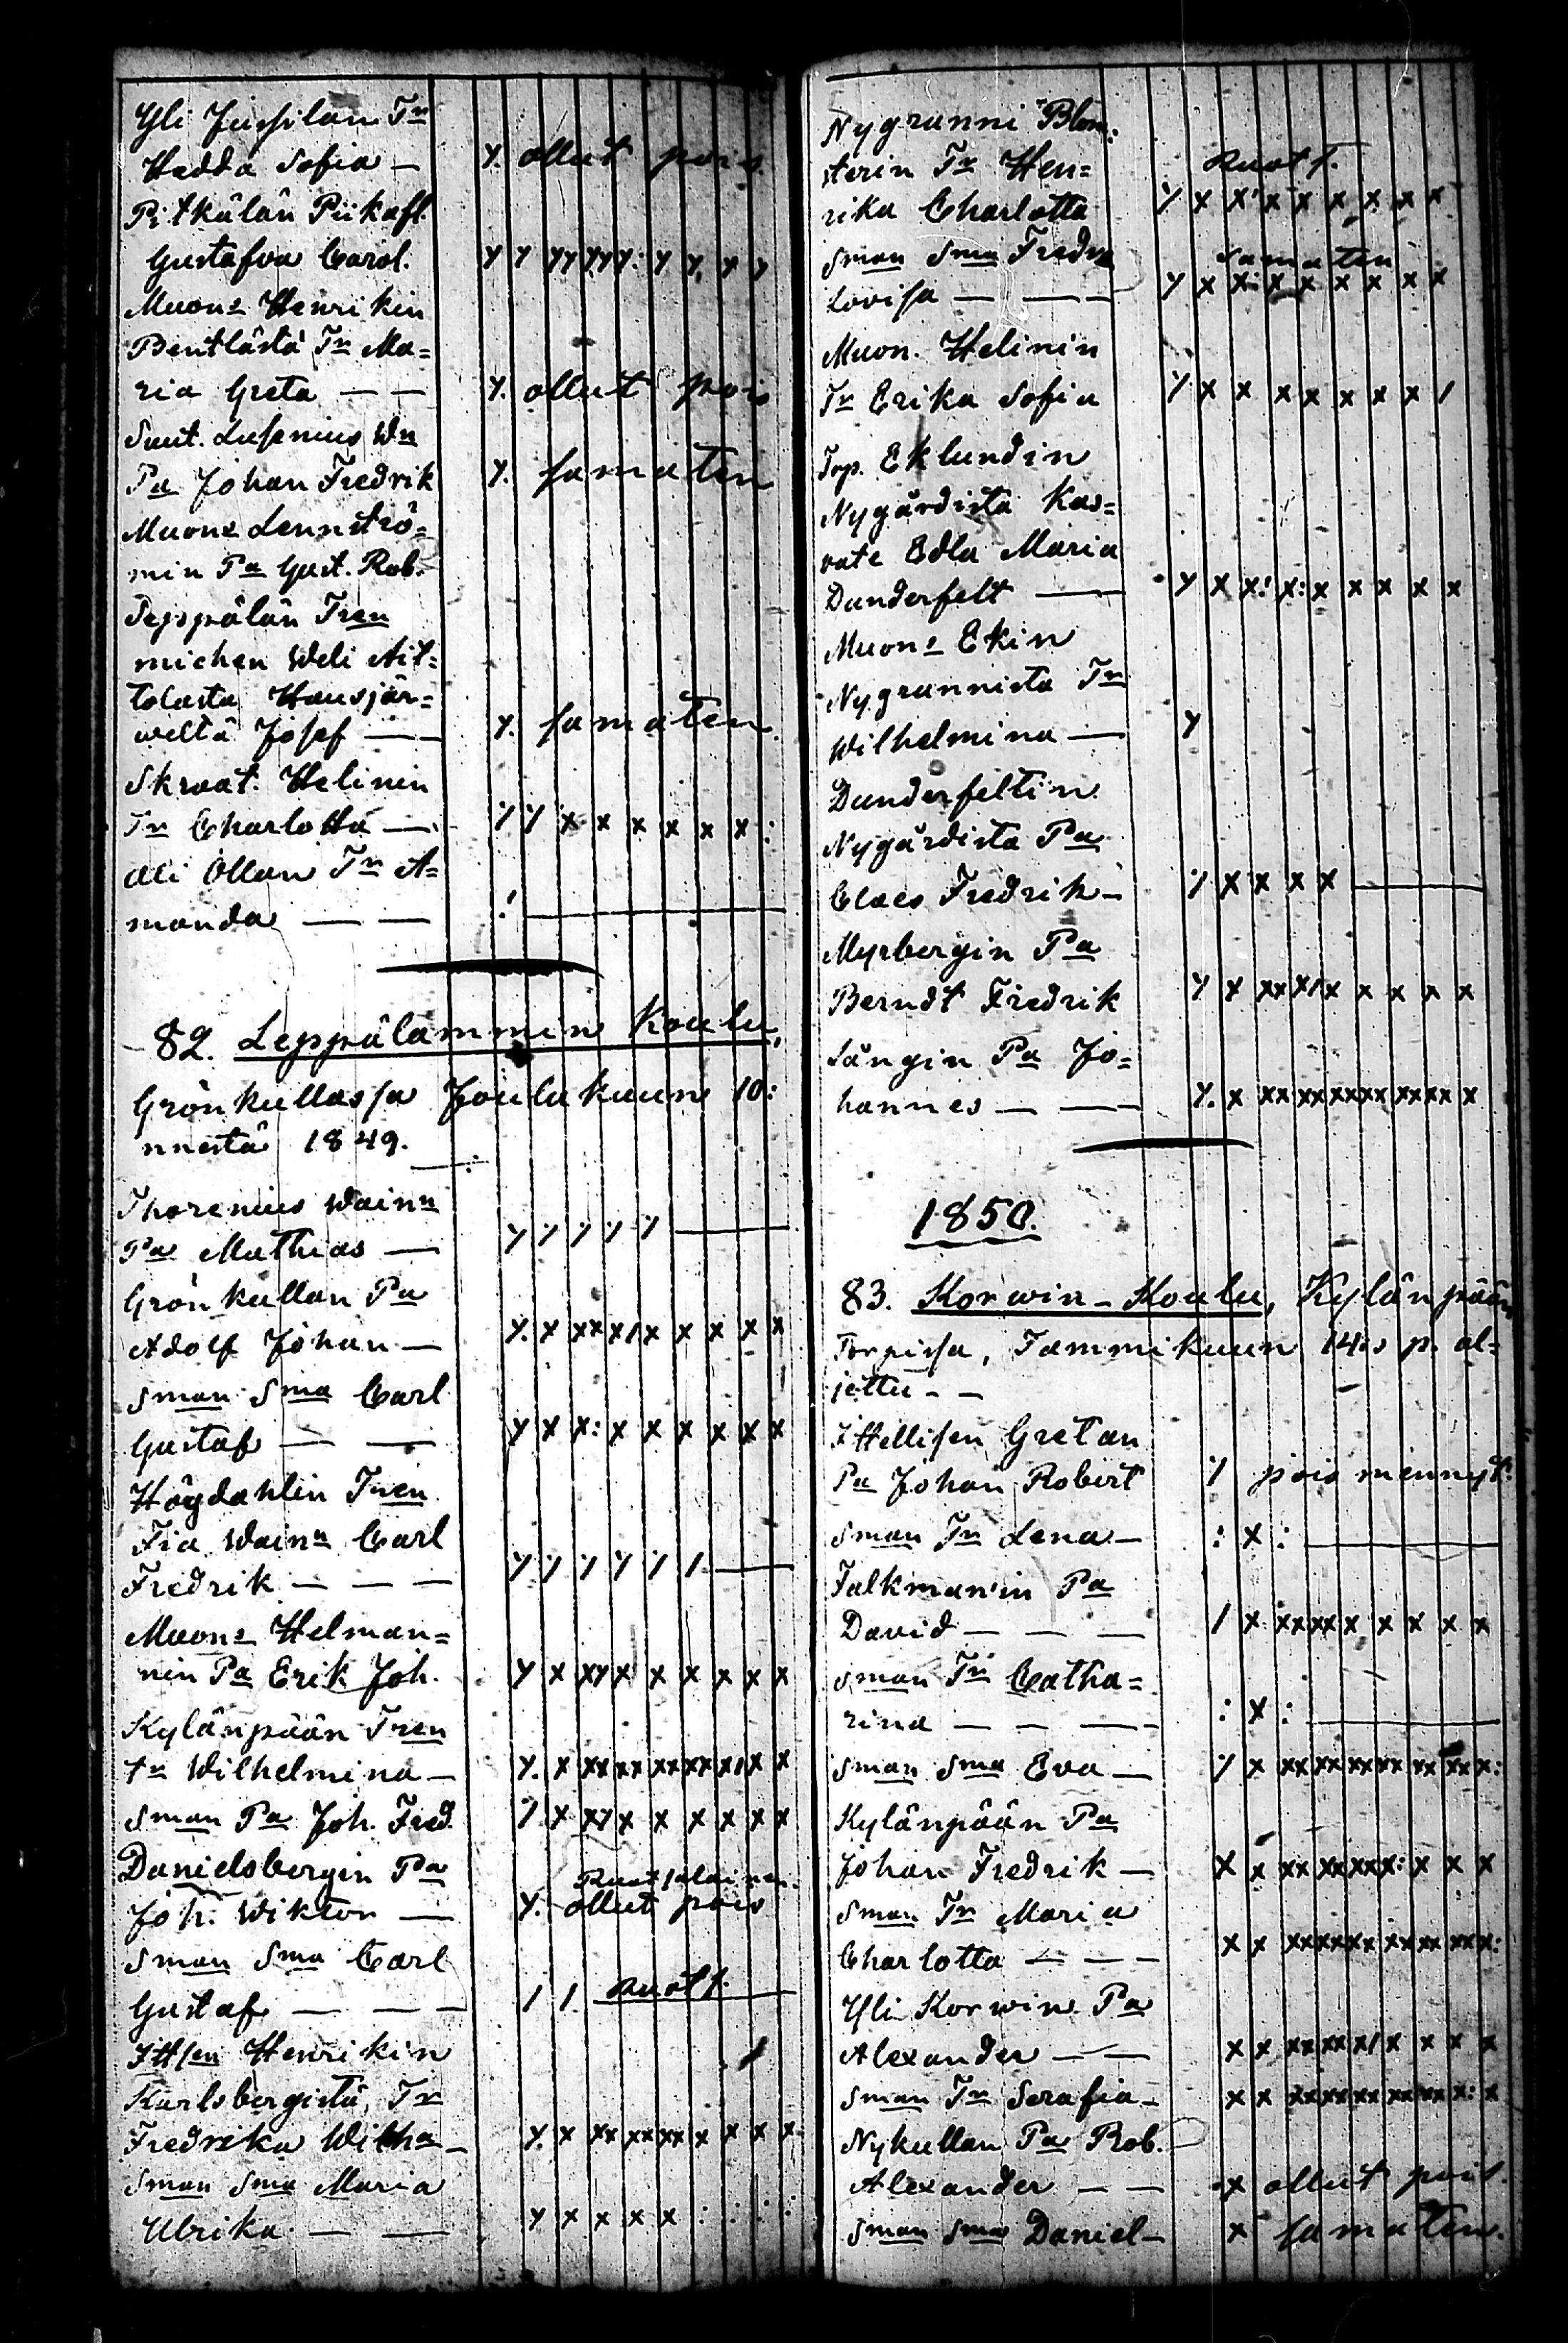 Yli Jussilan Tr
Hedda Sofia — y. ollut pois.
Pitkälän Piikafl.
Gustafva Carol. y y yy yyy: y y, y y
Muon= Henrikin
Penttästä Tr Ma=
ria Greta — — y. ollut pois
Suut. Lusenius Wn
Pa Johan Fredrik y. samaten
Muon= Lennströ=
min Pa Gust. Rob.
Seppälän Tren
michen Weli Ait=
tolasta Hausjär=
weltä Josef — y. samaten.
Skraat. Helinin
Tr Charlotta — y y x x x x x x :
Ali Ollan Tr A=
manda — — !
82. Leppälammin Koulu,
Grönkullassa Joulukuun 10:
nnestä 1849.
Thorenius Wainn
Pa Mathias — y y y y y —
Grönkullan Pa
Adolf Johan — y. x xx x/ x x x x x
Sman Sma Carl
Gustaf — — y x x: x x x x x x
Högdahlin Tren
Fia Wainn Carl
Fredrik — — — y y y y y / —
Muon= Helman=
nin Pa Erik Joh. y x xy x x x x x x
Kylänpään Tren
tr Wilhelmina — y. x xx xx xx xx x/ x x
Sman Pa Joh. Fred. y x xy x x x x x x
Danielsbergin Pa Ruotsalainen.
Joh. Wiktor — y. ollut pois
Sman Sma Carl
Gustaf — — — / / ruots.
Ittsen Henrikin
Karlsbergistä, Tr
Fredrika Wilha — y. x xx xx xx x x x x
Sman Sma Maria
Ulrika — — y x x x x : : : :
Nygranni Blom:
sterin Tr Hen= Ruots.
rika Charlotta y x x' x x x x x x
Sman Sma Fredra samaten
Lovisa — — y x x: x x x x x x
Muon. Helinin
Tr Erika Sofia y x x x x x x x /
Torp. Eklundin
Nygårdista Kas=
vate Edla Maria
Dunderfelt — y x x! x: x x x x x
Muon= Ekin
Nygrannista Tr
Wilhelmina — y
Dunderfeltin
Nygårdista Pa
Claes Fredrik — y x x x x —
Myrbergin Pa
Berndt Fredrik y x xx x/ x x x x x
Sångin Pa Jo=
hannes — — y. x xx xx xx xx xx xx x
1850.
83. Korwin-Koulu, Kylänpään
Torpissa, Tammikuun 14:s p. al=
jettu - -
Ittellisen Gretan
Pa Johan Robert y pois mennyt.
Sman Tr Lena — : x : —
Falkmanin Pa
David — — — / x xx xx x x x x x
Sman Tr Catha=
rina — — — : x : —
Sman Sma Eva — y x xx xx xx xx xx xx x:
Kylänpään Pa
Johan Fredrik — x x xx xx xx x: x x x
Sman Tr Maria
Charlotta — — — x x xx xx xx xx xx xx x:
Yli Korwin Pa
Alexander — — x x xx xx x/ x x x x
Sman Tr Serafia — x x xx xx xx xx xx x: x
Nykullan Pa Rob.
Alexander — — x ollut pois.
Sman Sma Daniel — x samaten.